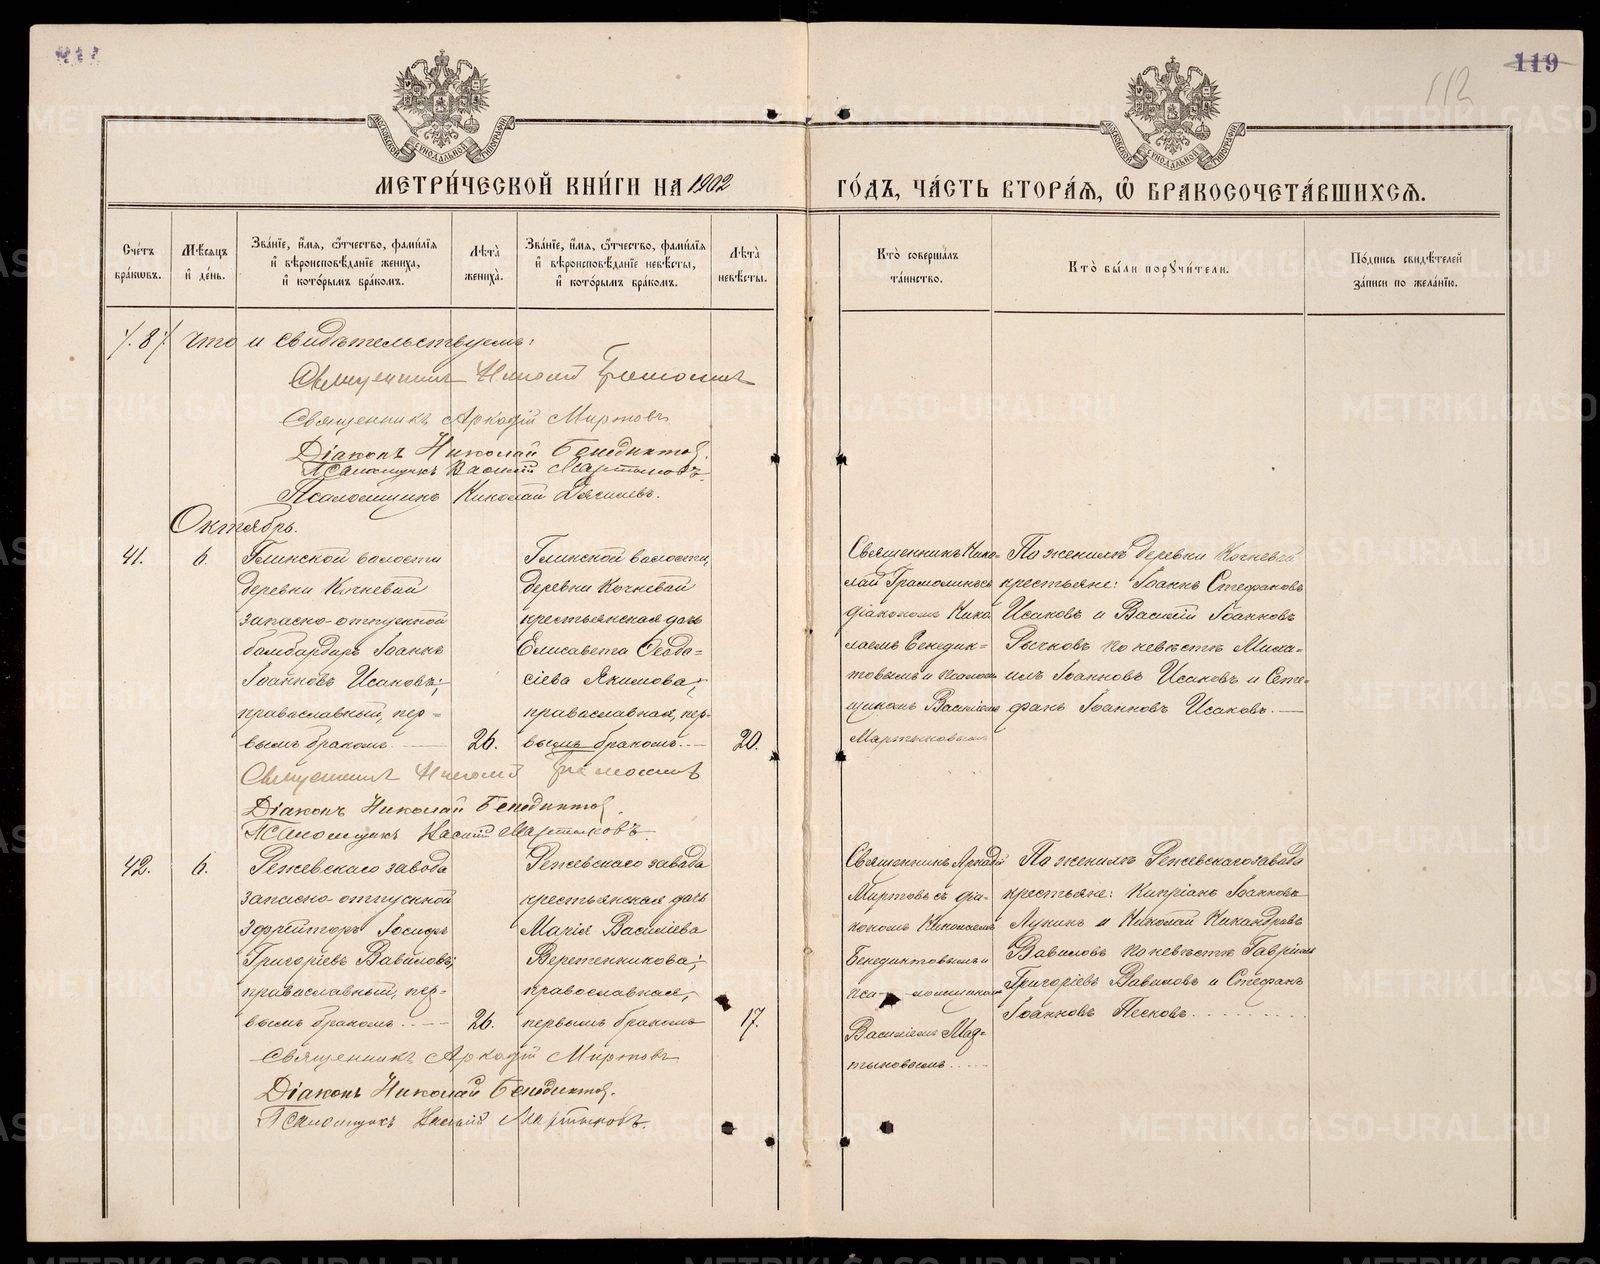 119
112
МЕТРИ́ЧЕСКОЙ КНИ́ГИ НА 1902 ГО́ДЪ, ЧА́СТЬ ВТОРА́Я, Ѿ БРАКОСОЧЕТА́ВШИХСЯ.
Сче́тъ бра́ковъ.
Мѣ́сяцъ и҆ де́нь.
Зва́нїе, и҆́мя, ѻ҆́тчество, фами́лїя и҆ вѣроисповѣ́данїе жениха̀, и҆ кото́рымъ бра́комъ.
Лѣ́та̀ жениха̀.
Зва́нїе, и҆́мя, ѻ҆́тчество, фами́лїя и҆ вѣроисповѣ́данїе невѣ́сты, и҆ кото́рымъ бра́комъ.
Лѣ́та̀ невѣ́сты.
Кто̀ соверша́лъ та́инство.
Кто̀ бы́ли порꙋчи́тели.
По́дпись свидѣ́телей за́писи по жела́нїю.
8 что и свидѣтельствуемъ:
Священникъ Николай Грамолинъ
Священникъ Аркадій Миртовъ
Діаконъ Николай Бенедиктов
Псаломщикъ Василій Мартыновъ
Псаломщикъ Николай
Октябрь.
41.
6.
Глинской волости
деревни Кочневой
запасно-отпускной
бомбардиръ Іоаннъ
Іоанновъ Исаковъ;
православный, пер-
вымъ бракомъ.
26.
Глинской волости,
деревни Кочневой
крестьянская дочь
Елисавета Ѳеодо-
сіева Якимова;
православная, пер-
вымъ бракомъ.
20.
Священникъ Нико-
лай Грамолинъ съ
діакономъ Нико
лаемъ Бенедик-
товымъ и псалом
щикомъ Василіемъ
Мартыновымъ
По женихѣ деревни Кочневой
крестьяне: Іоаннъ Стефановъ
Исаковъ и Василій Іоанновъ
Рычковъ по невѣстѣ Миха-
илъ Іоанновъ Исаковъ и Сте-
фанъ Іоанновъ Исаковъ.
Священникъ Николай Грамолинъ
Діаконъ Николай Бенедиктов
Псаломщикъ Василій Мартыновъ.
42.
6.
Режевскаго завода
запасно-отпускной
ефрейторъ Іосифъ
Григоріевъ Вавиловъ;
православный, пер-
вымъ бракомъ.
26.
Режевскаго завода
крестьянская дочь
Марія Василіева
Веретенникова;
православная,
первымъ бракомъ
17.
Священникъ Аркадій
Миртовъ съ діа-
кономъ Николаемъ
Бенедиктовымъ и
пса-ломщикомъ
Василіемъ Мар-
тыновымъ.
По женихѣ Режевскаго завода
крестьяне: Кипріанъ Іоанновъ
Лукинъ и Николай Никандровъ
Вавиловъ по невѣстѣ Гавріилъ
Григоріевъ Вавиловъ и Стефанъ
Іоанновъ Песковъ.
Священникъ Аркадій Миртовъ
Діаконъ Николай Бенедиктов.
Псаломщикъ Василій Мартыновъ.
METRIKI.GASO-URAL.RU